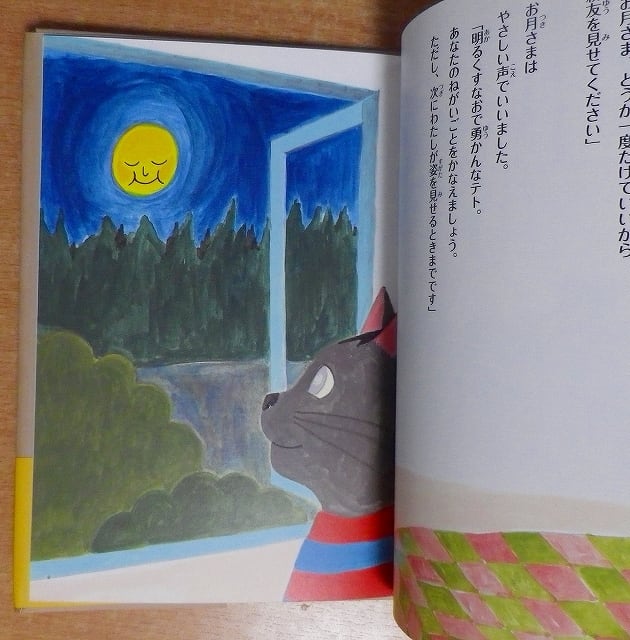 お月さま どうか一度だけでいいから
友を見せてください」
お月さまは
やさしい声でいいました。
「明るくすなおで勇かんなテト。
あなたのねがいごとをかなえましょう。
ただし、次にわたしが姿を見せるときまでです」